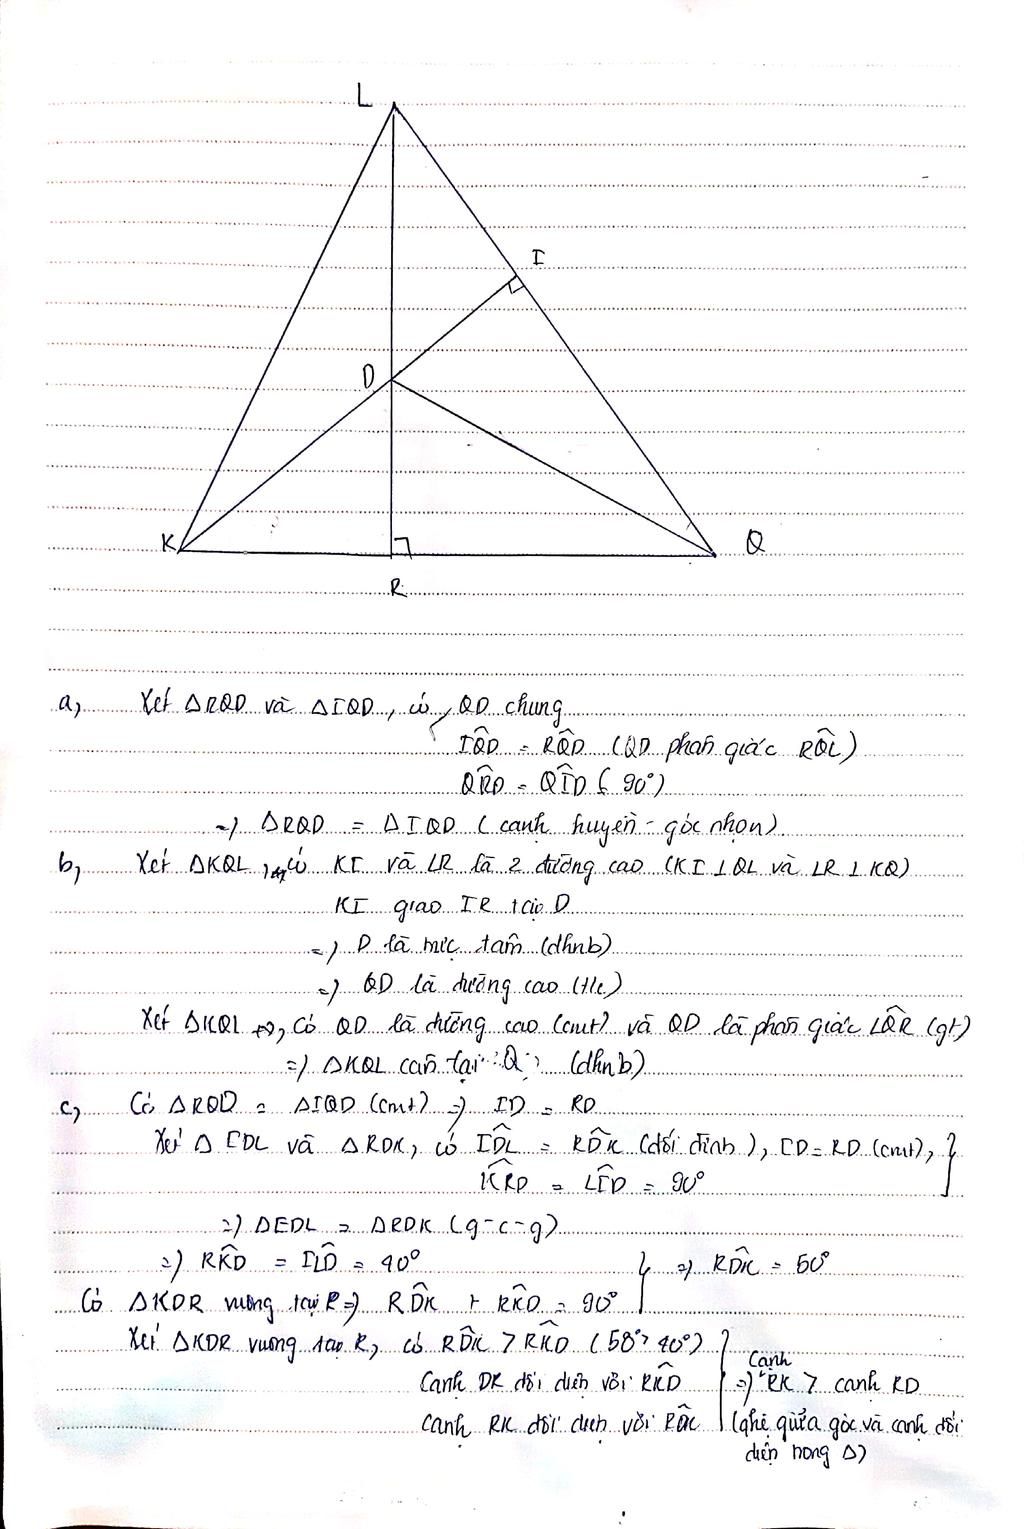 L
I
D
K
Q
R
a, Xét ΔRQD và ΔIQD, có, QD chung
IQ̂D = RQ̂D (QD phân giác RQ̂L)
QR̂D = QÎD (= 90°)
=) ΔRQD = ΔIQD (cạnh huyền - góc nhọn)
b, Xét ΔKQL, có KI và LR là 2 đường cao (KI ⊥ QL và LR ⊥ KQ)
KI giao IR tại D
=) D là trực tâm (dhnb)
=) QD là đường cao (t/c)
Xét ΔKQL, có QD là đường cao (cmt) và QD là phân giác LQ̂R (gt)
=) ΔKQL cân tại Q (dhnb)
c, Có ΔRQD = ΔIQD (cmt) =) ID = RD
Xét Δ IDL và ΔRDK, có ID̂L = RD̂K (đối đỉnh), ID = RD (cmt),
KR̂D = LÎD = 90°
=) ΔIDL = ΔRDK (g-c-g)
=) RK̂D = IL̂D = 40° =) RD̂K = 50°
Có ΔKDR vuông tại R =) RD̂K + RK̂D = 90°
Xét ΔKDR vuông tại R, có RD̂K > RK̂D (50° > 40°)
Cạnh DR đối diện với RK̂D =) Cạnh RK > cạnh RD
Cạnh RK đối diện với RD̂K (qhệ giữa góc và cạnh đối
diện trong Δ)